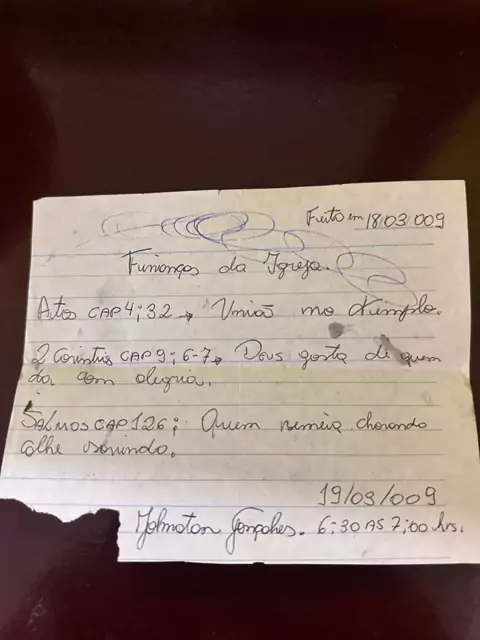 Feito em 18/03/009
Finanças da Igreja.
Atos CAP 4; 32 → União no templo.
2 Corintios CAP 9; 6-7 → Deus gosta de quem
da, com alegria.
SALMOS CAP 126; Quem semeia chorando
colhe sorrindo.
19/03/009
Gonçalves. 6:30 AS 7:00 hrs.